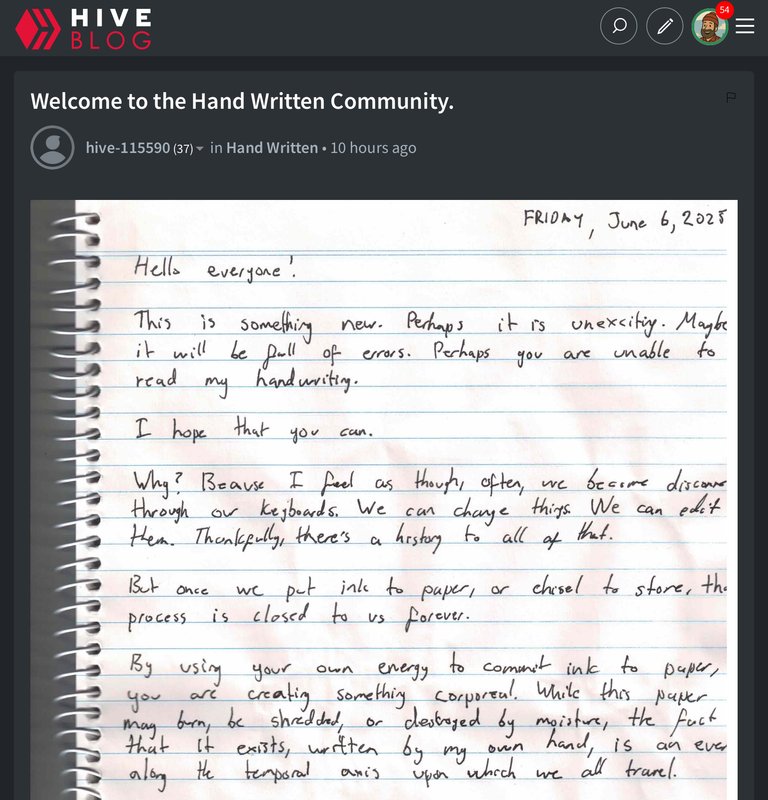 HIVE
BLOG
54
Welcome to the Hand Written Community.
hive-115590 (37) in Hand Written • 10 hours ago
FRIDAY, June 6, 2025
Hello everyone!
This is something new. Perhaps it is unexcitiy. Maybe
it will be full of errors. Perhaps you are unable to
read my handwriting.
I hope that you can.
Why? Beause I feel as though, often, we become disconne
through our keyboards. We can change things. We can edit
them. Thankfully, there's a history to all of that.
But once we put ink to paper, or chisel to stone, the
process is closed to us forever.
By using your own energy to commit ink to paper,
you are creating something corporeal. While this paper
may burn, be shredded, or destroyed by moisture, the fact
that it exists, written by my own hand, is an eve
along the temporal axis upon which we all travel.